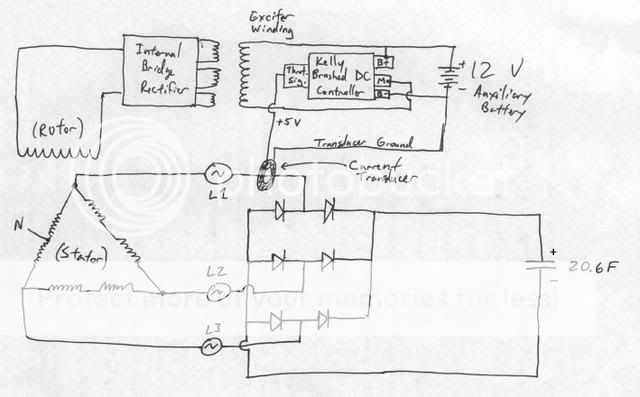 Exciter
Winding
Internal
Bridge
Rectifier
Throt.
Sig.
Kelly
Brushed DC
Controller
B+
M-
B-
+
12 V
-
Auxiliary
Battery
(Rotor)
+5V
Transducer Ground
Current
Transducer
L1
N
(Stator)
L2
L3
+
20.6F
-
photobucket
Protect more of your memories for less!